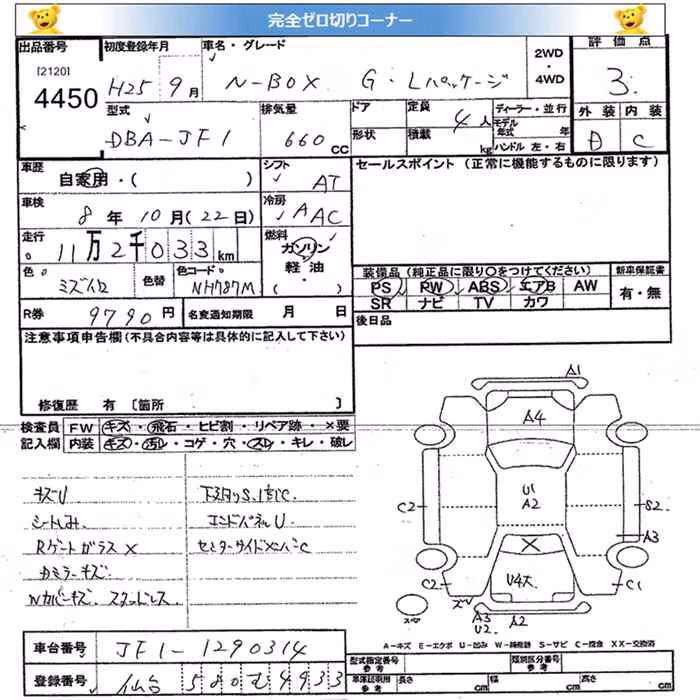 完全ゼロ切りコーナー
出品番号 初度登録年月 車名・グレード 2WD ・ 4WD 評価点
[2120] 4450 H25 9月 N-BOX G・Lパッケージ 3
型式 排気量 ドア 定員 ディーラー・並行 外装 内装
DBA-JF1 660 CC 形状 4人 積載 kg モデル年式 年 ハンドル 左・右 D C
車歴 自家用・( ) シフト AT セールスポイント (正常に機能するものに限ります)
車検 8年10月(22日) 冷房 AAC
走行 11万2千033km 燃料 ガソリン・軽油・( )
色 ミズイロ 色替 色コード NH787M
装備品 (純正品に限り〇をつけてください) 新車保証書
PS PW ABS エアB AW 有・無
SR ナビ TV カワ
R券 9790円 名変通知期限 月 日 後日品
注意事項申告欄(不具合内容等は具体的に記入して下さい)
修復歴 有 [箇所 ]
検査員 FW キズ・飛石・ヒビ割・リペア跡・×要
記入欄 内装 キズ・汚レ・コゲ・穴・スレ・キレ・破レ
キズU 下廻りS、サビC
シートしみ エンドパネルU
Rゲートガラス× センターサイドメンバーC
カミラーキズ
Wカバーキズ スタッドレス
A1
A4
U1
A2
C2 S2
A3
U4大
C2 C1
スペ
ズレ
A3
U2 A2
A-キズ E-エクボ U-凹み W-補修跡 S-サビ C-腐食 XX-交換済
車台番号 JF1-1290314 型式指定番号 参考 類別区分番号 参考
登録番号 仙台 580 む 4933 車庫証明用 参考 長さ cm 幅 cm 高さ cm